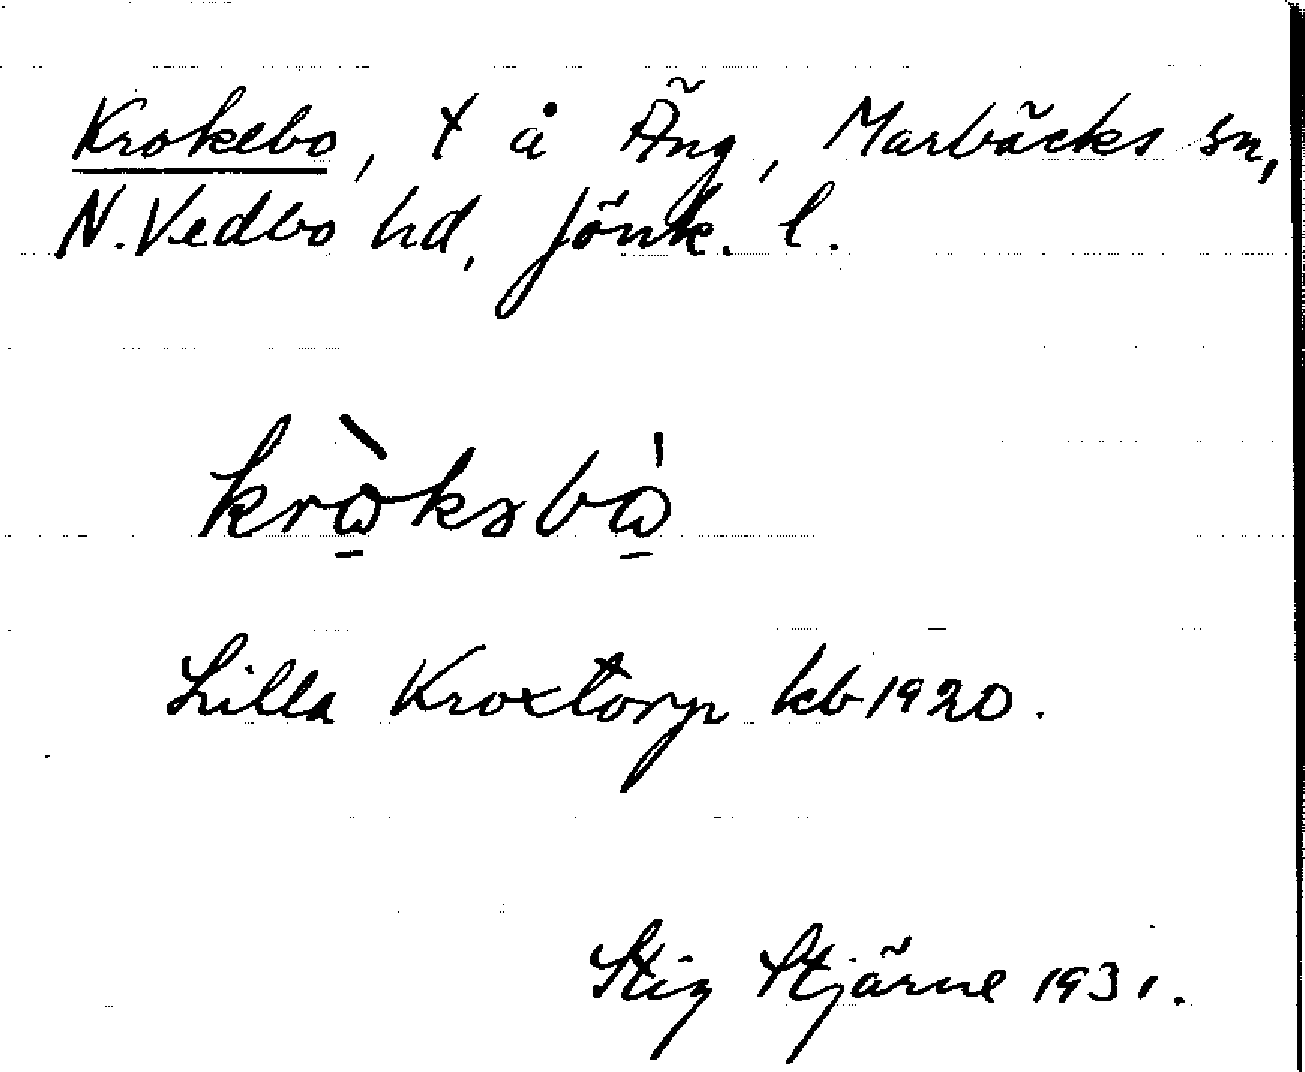 Krokebo, t å Äng, Marbäcks sn,
N. Vedbo hd, Jönk. l.
Lilla Kroxtorp kb 1920.
Stig Stjärne 1931.